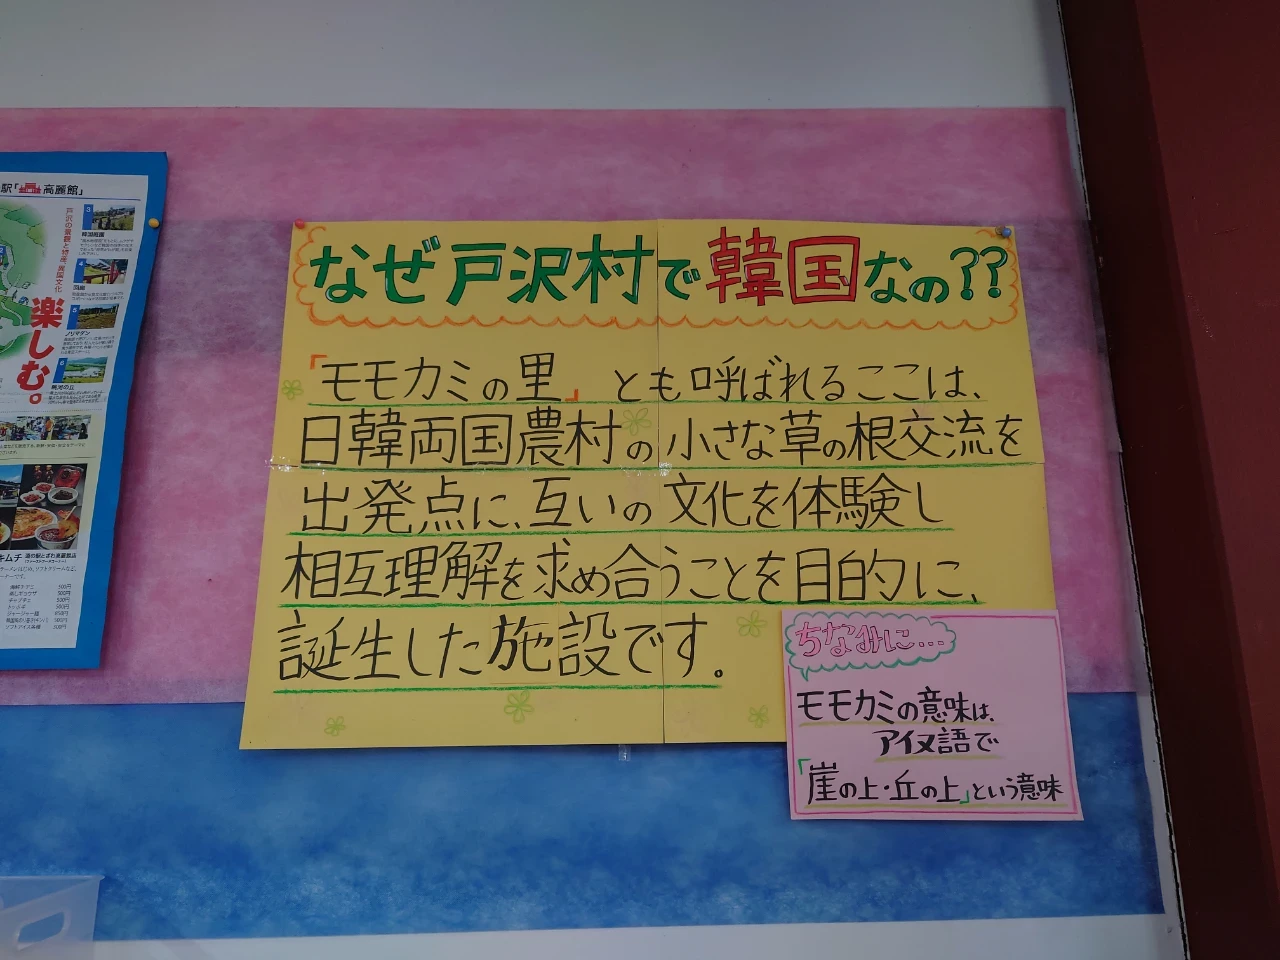 駅「高麗館」
戸沢の景観と特産、異国文化
楽しむ。
3
韓国庭園
4
5
ノリマダン
6
キムチ
なぜ戸沢村で韓国なの??
「モモカミの里」とも呼ばれるここは、
日韓両国農村の小さな草の根交流を
出発点に、互いの文化を体験し
相互理解を求め合うことを目的に、
誕生した施設です。
ちなみに…
モモカミの意味は、
アイヌ語で
「崖の上・丘の上」という意味